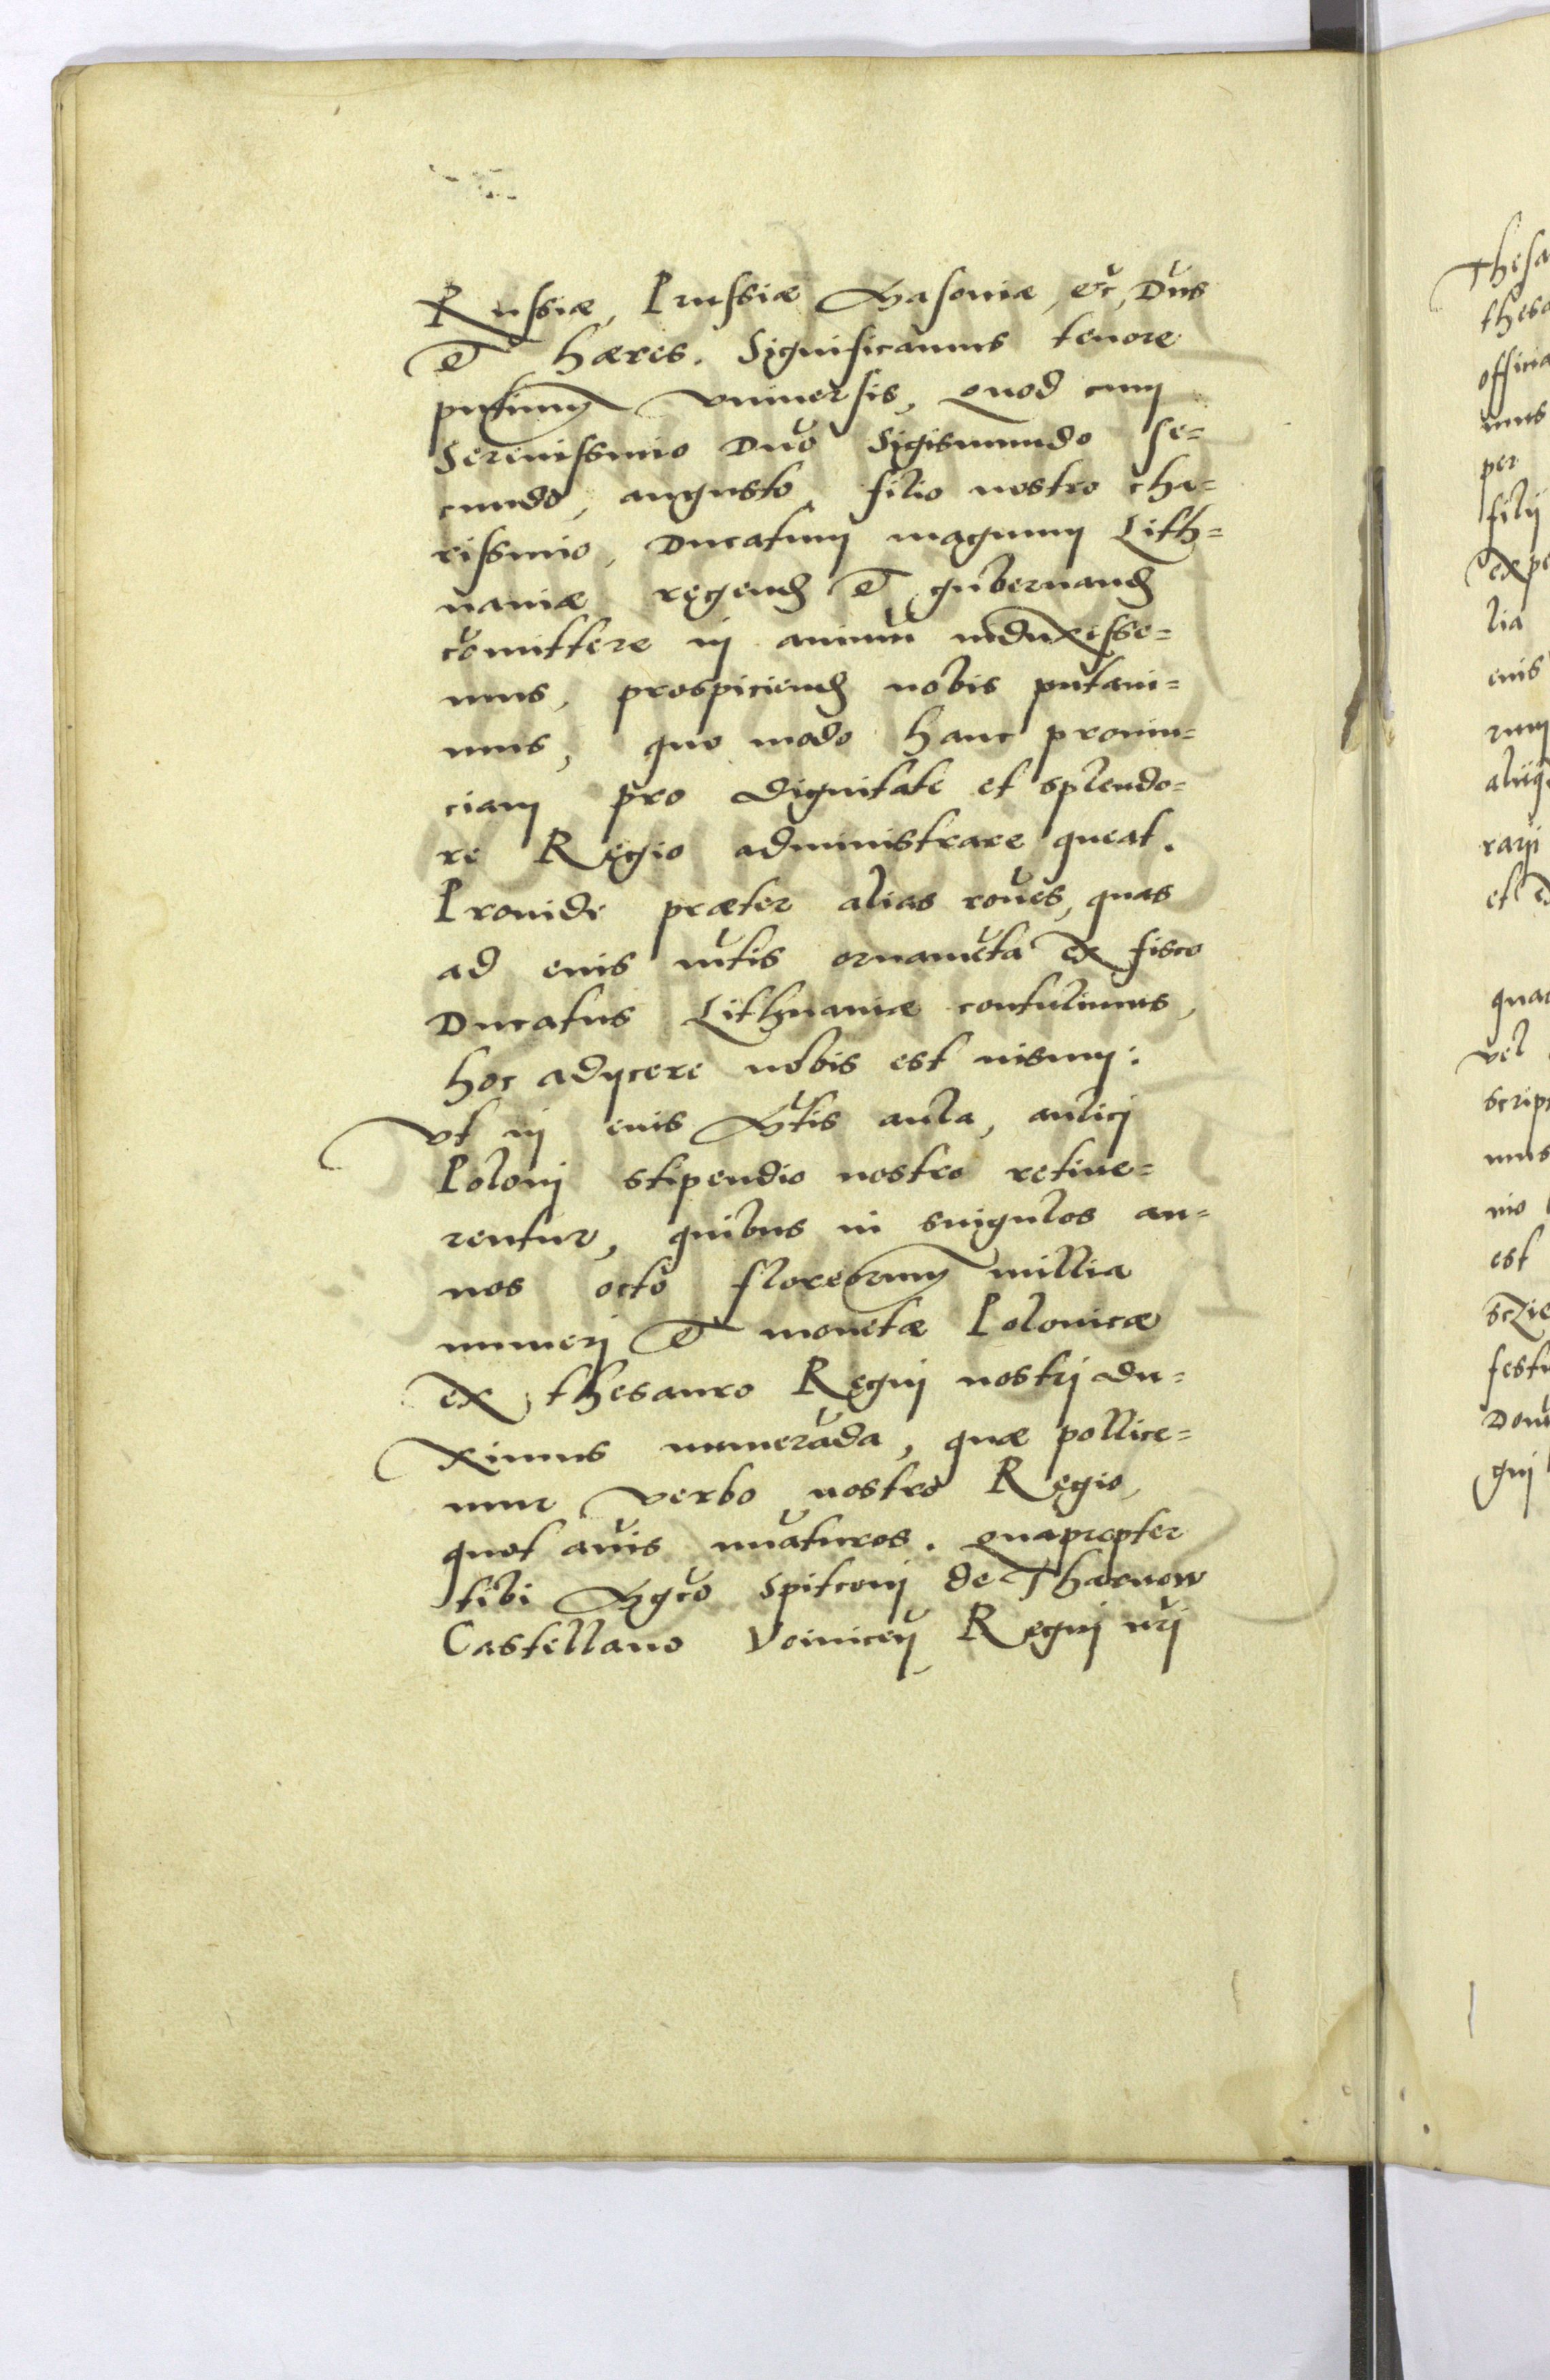 Russiæ, Prussiæ Masoniæ, etc, Dūs
et hæres. Significamus tenore
pn̄tium vniuersis, quod cum
Serenissimo Dn̄o Sigismundo se=
cundo, augusto, filio nostro cha=
rissimo, Ducatum magnum Lith=
naniæ regend et gubernand
cōmittere in animū induxisse=
mus, prospiciend nobis putaui=
mus, quo modo hanc prouin=
ciam pro dignitate et splendo=
re Regio administrare queat.
Prouide præter alias rōnes, quas
ad eius mt̄is ornamēta ex fisco
Ducatus Lithuaniæ contulimus,
hoc adijcere nobis est uisum:
Vt in eius Mt̄is aula, aulicj
Polonj stipendio nostro retine=
rentur, quibus in singulos an=
nos octo florenorum millia
numerj et monetæ Polonicæ
ex thesauro Regnj nostrj du=
ximus numerāda, quæ pollice=
mur verbo nostro Regio,
quot an̄is nūaturos. Quapropter
tibi Mgc̄o Spitconj de Tharnow
Castellano Voiniceñ Regnj nr̄j
Thesa
thesa
officia
mus
per
filij
expe
lia
enis
rum
alijq
rarij
et
qua
vel
scrip
mus
nio
est
sczie
festu
Don
gnj